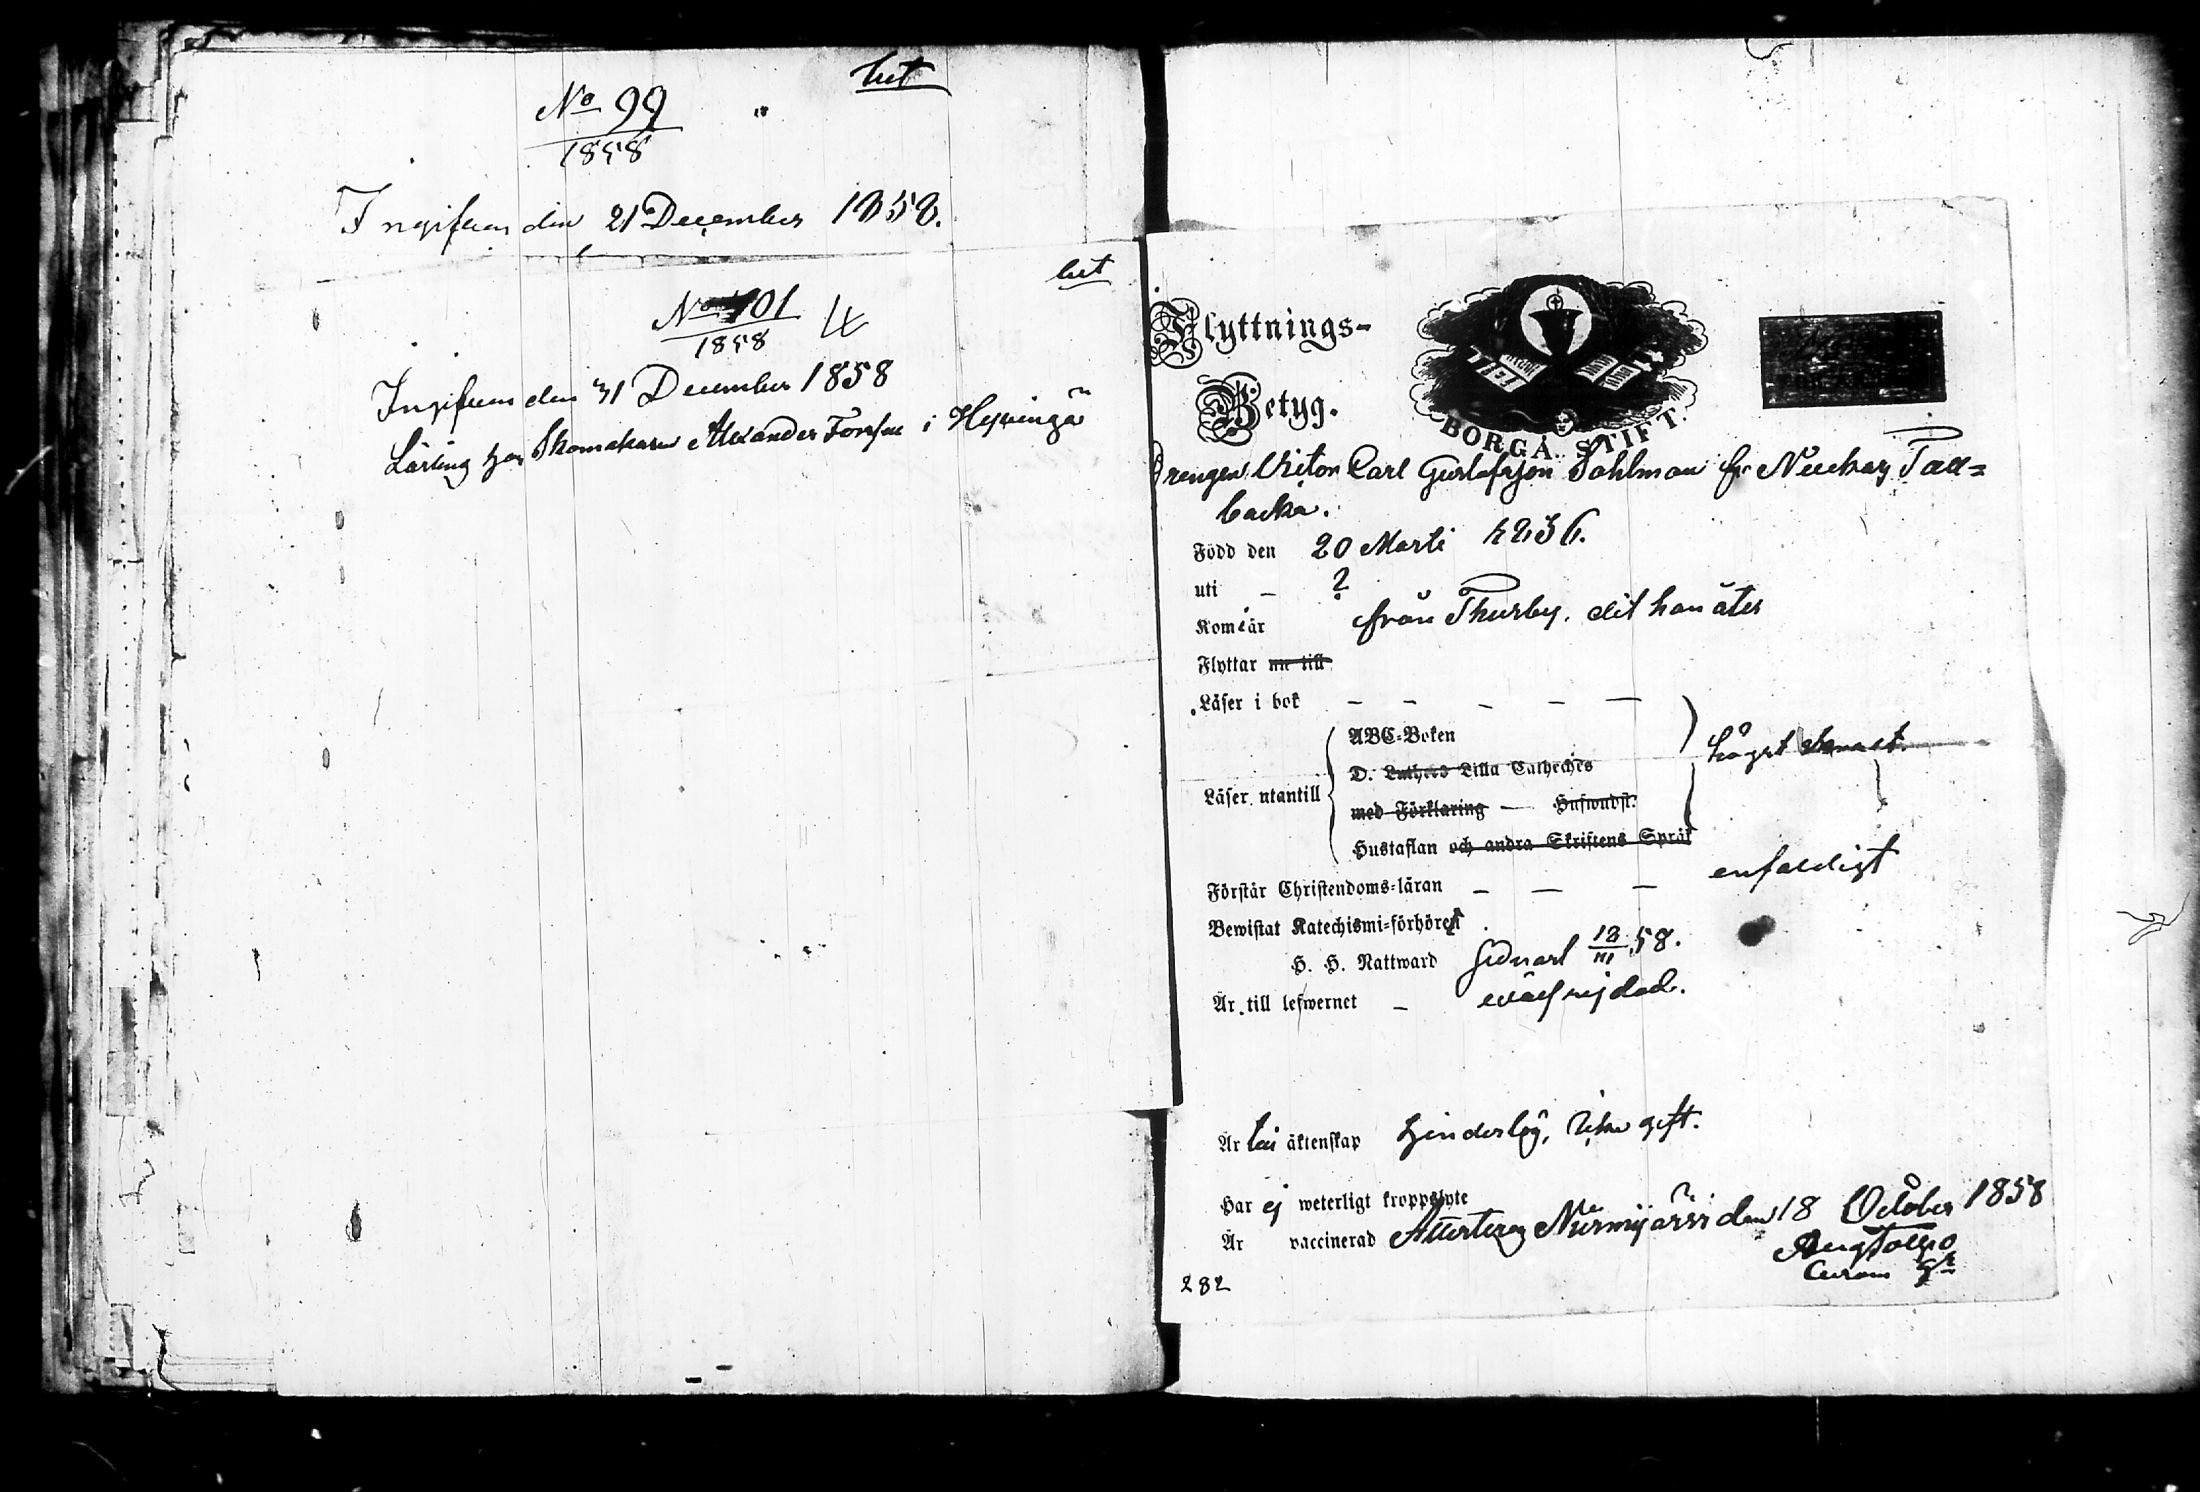 hit
No 99
1858
Ingifven den 21 December 1858.
hit
No 101
1858
Ingifven den 31 December 1858
Lärling hos Skomakaren Alexander Forsse i Helsinga
Flyttnings-
Betyg.
BORGÅ STIFT.
Drengen Victor Carl Gustafsson Sohlman fr Tall=
backa.
Född den 20 Marti 1836.
uti — ?
Kom i år från Thusby, dit han åter
Flyttar nu till
Läser i bok — — — — —
ABC-Boken
D. Luthers Lilla Catheches
högst svagt.
Läser utantill
med Förklaring — Huswudst.
Hustaflan och andra Skriftens Språk
Förstår Christendoms-läran — — — enfaldigt
Bewistat Katechismi-förhören
H. H. Nattward sednast 58.
Är till lefwernet — wälfrejdad.
Är till äktenskap hinderlös, icke gift.
Har ej weterligt kroppslyte
Är vaccinerad Attesteras Nurmijärvi den 18 October 1858
282